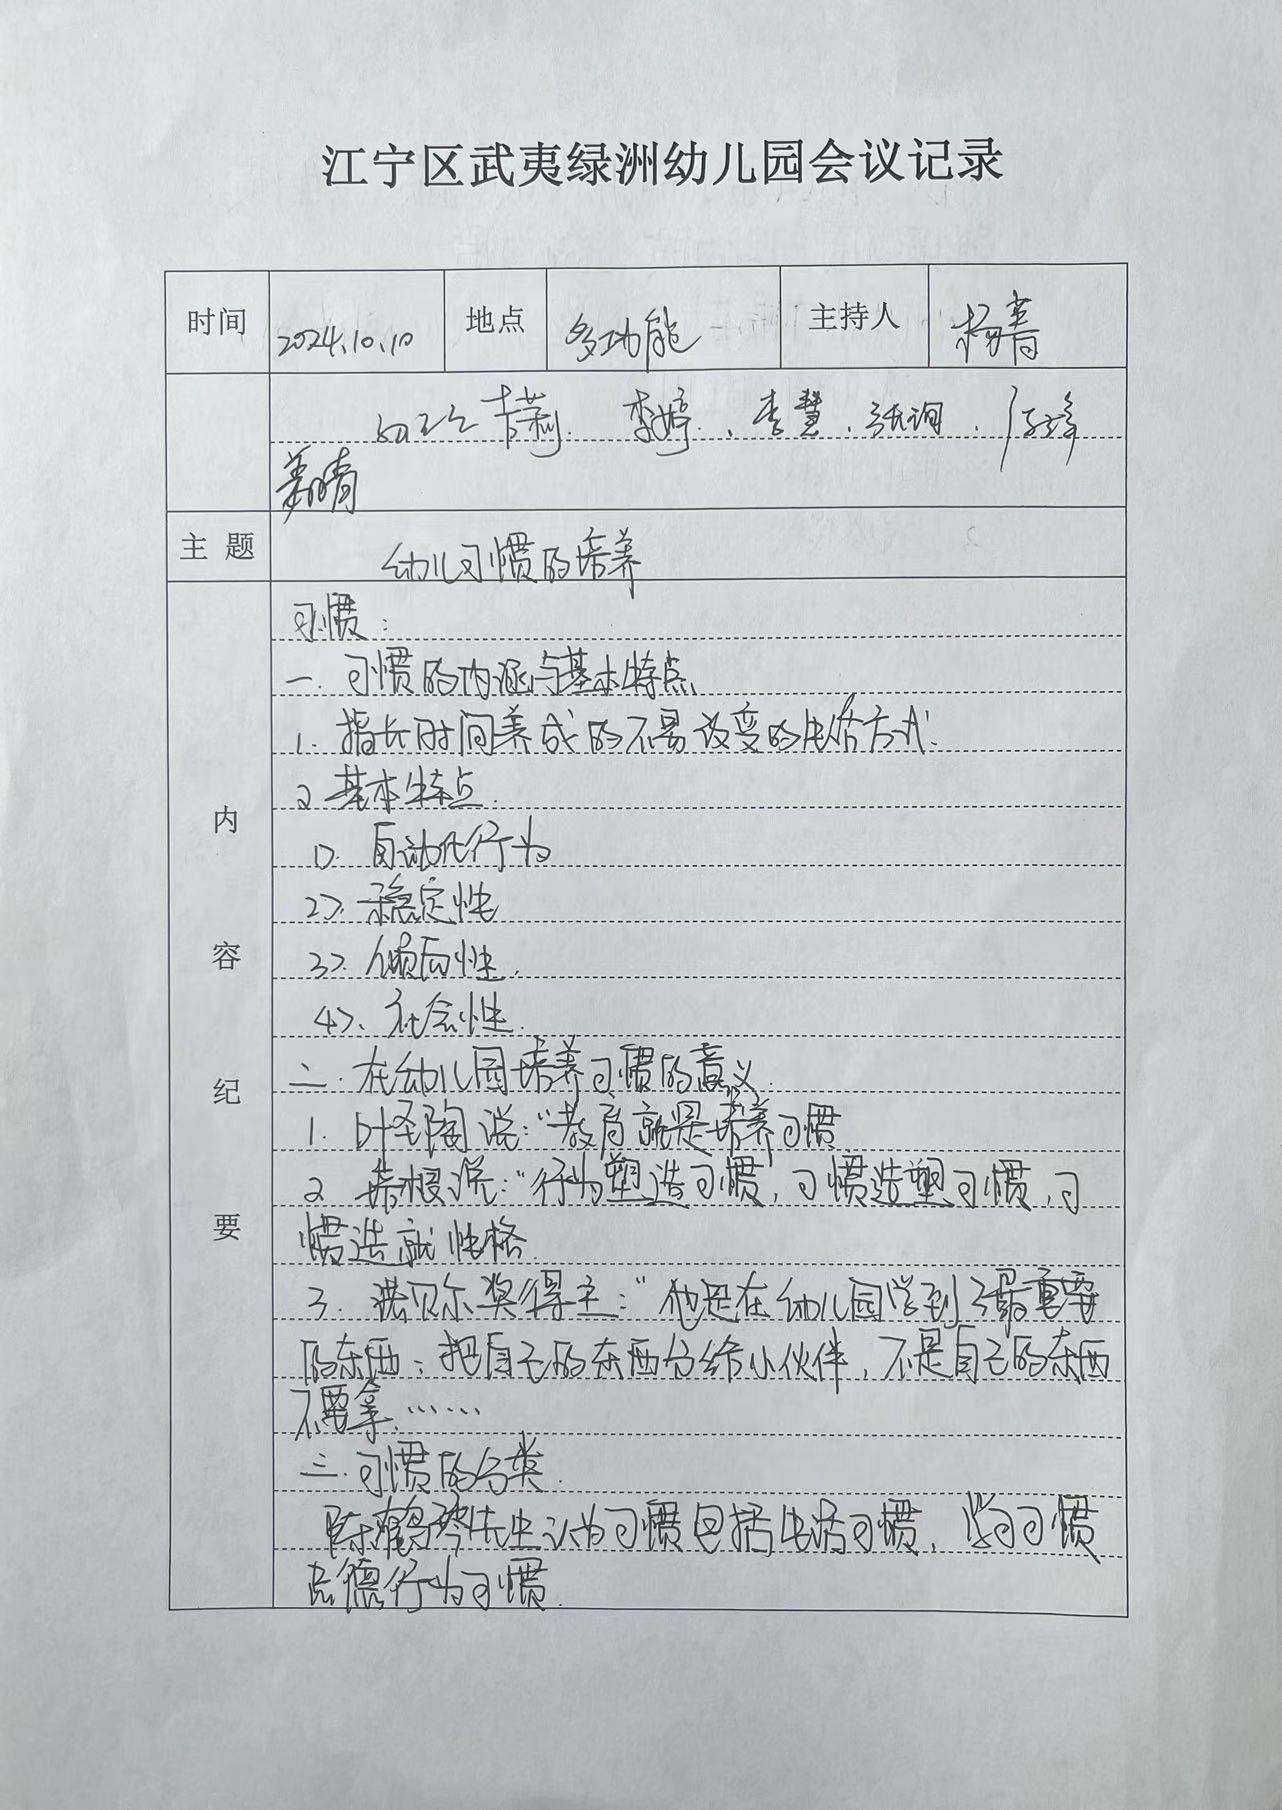 江宁区武夷绿洲幼儿园会议记录
时间 2024.10.10 地点 多功能 主持人 杨青
吉莉、李婷、李慧、张询、
姜晴
主 题 幼儿习惯的培养
内容纪要
习惯:
一. 习惯的内涵与基本特点
1. 指长时间养成的不易改变的生活方式.
2 基本特点.
1). 自动化行为
2>. 稳定性
3>. 倾向性.
4>. 社会性.
二. 在幼儿园培养习惯的意义.
1. 叶圣陶说:“教育就是培养习惯
2 培根说:“行为塑造习惯, 习惯造塑习惯, 习
惯造就性格.
3. 诺贝尔奖得主:“他是在幼儿园学到了最重要
的东西: 把自己的东西分给小伙伴, 不是自己的东西
不要拿.……
三. 习惯的分类.
陈鹤琴先生认为习惯包括生活习惯, 学习习惯
品德行为习惯.